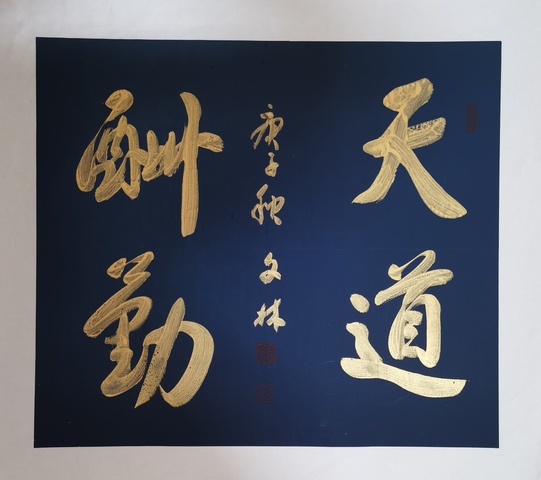 天道
庚子秋 文林
酬勤